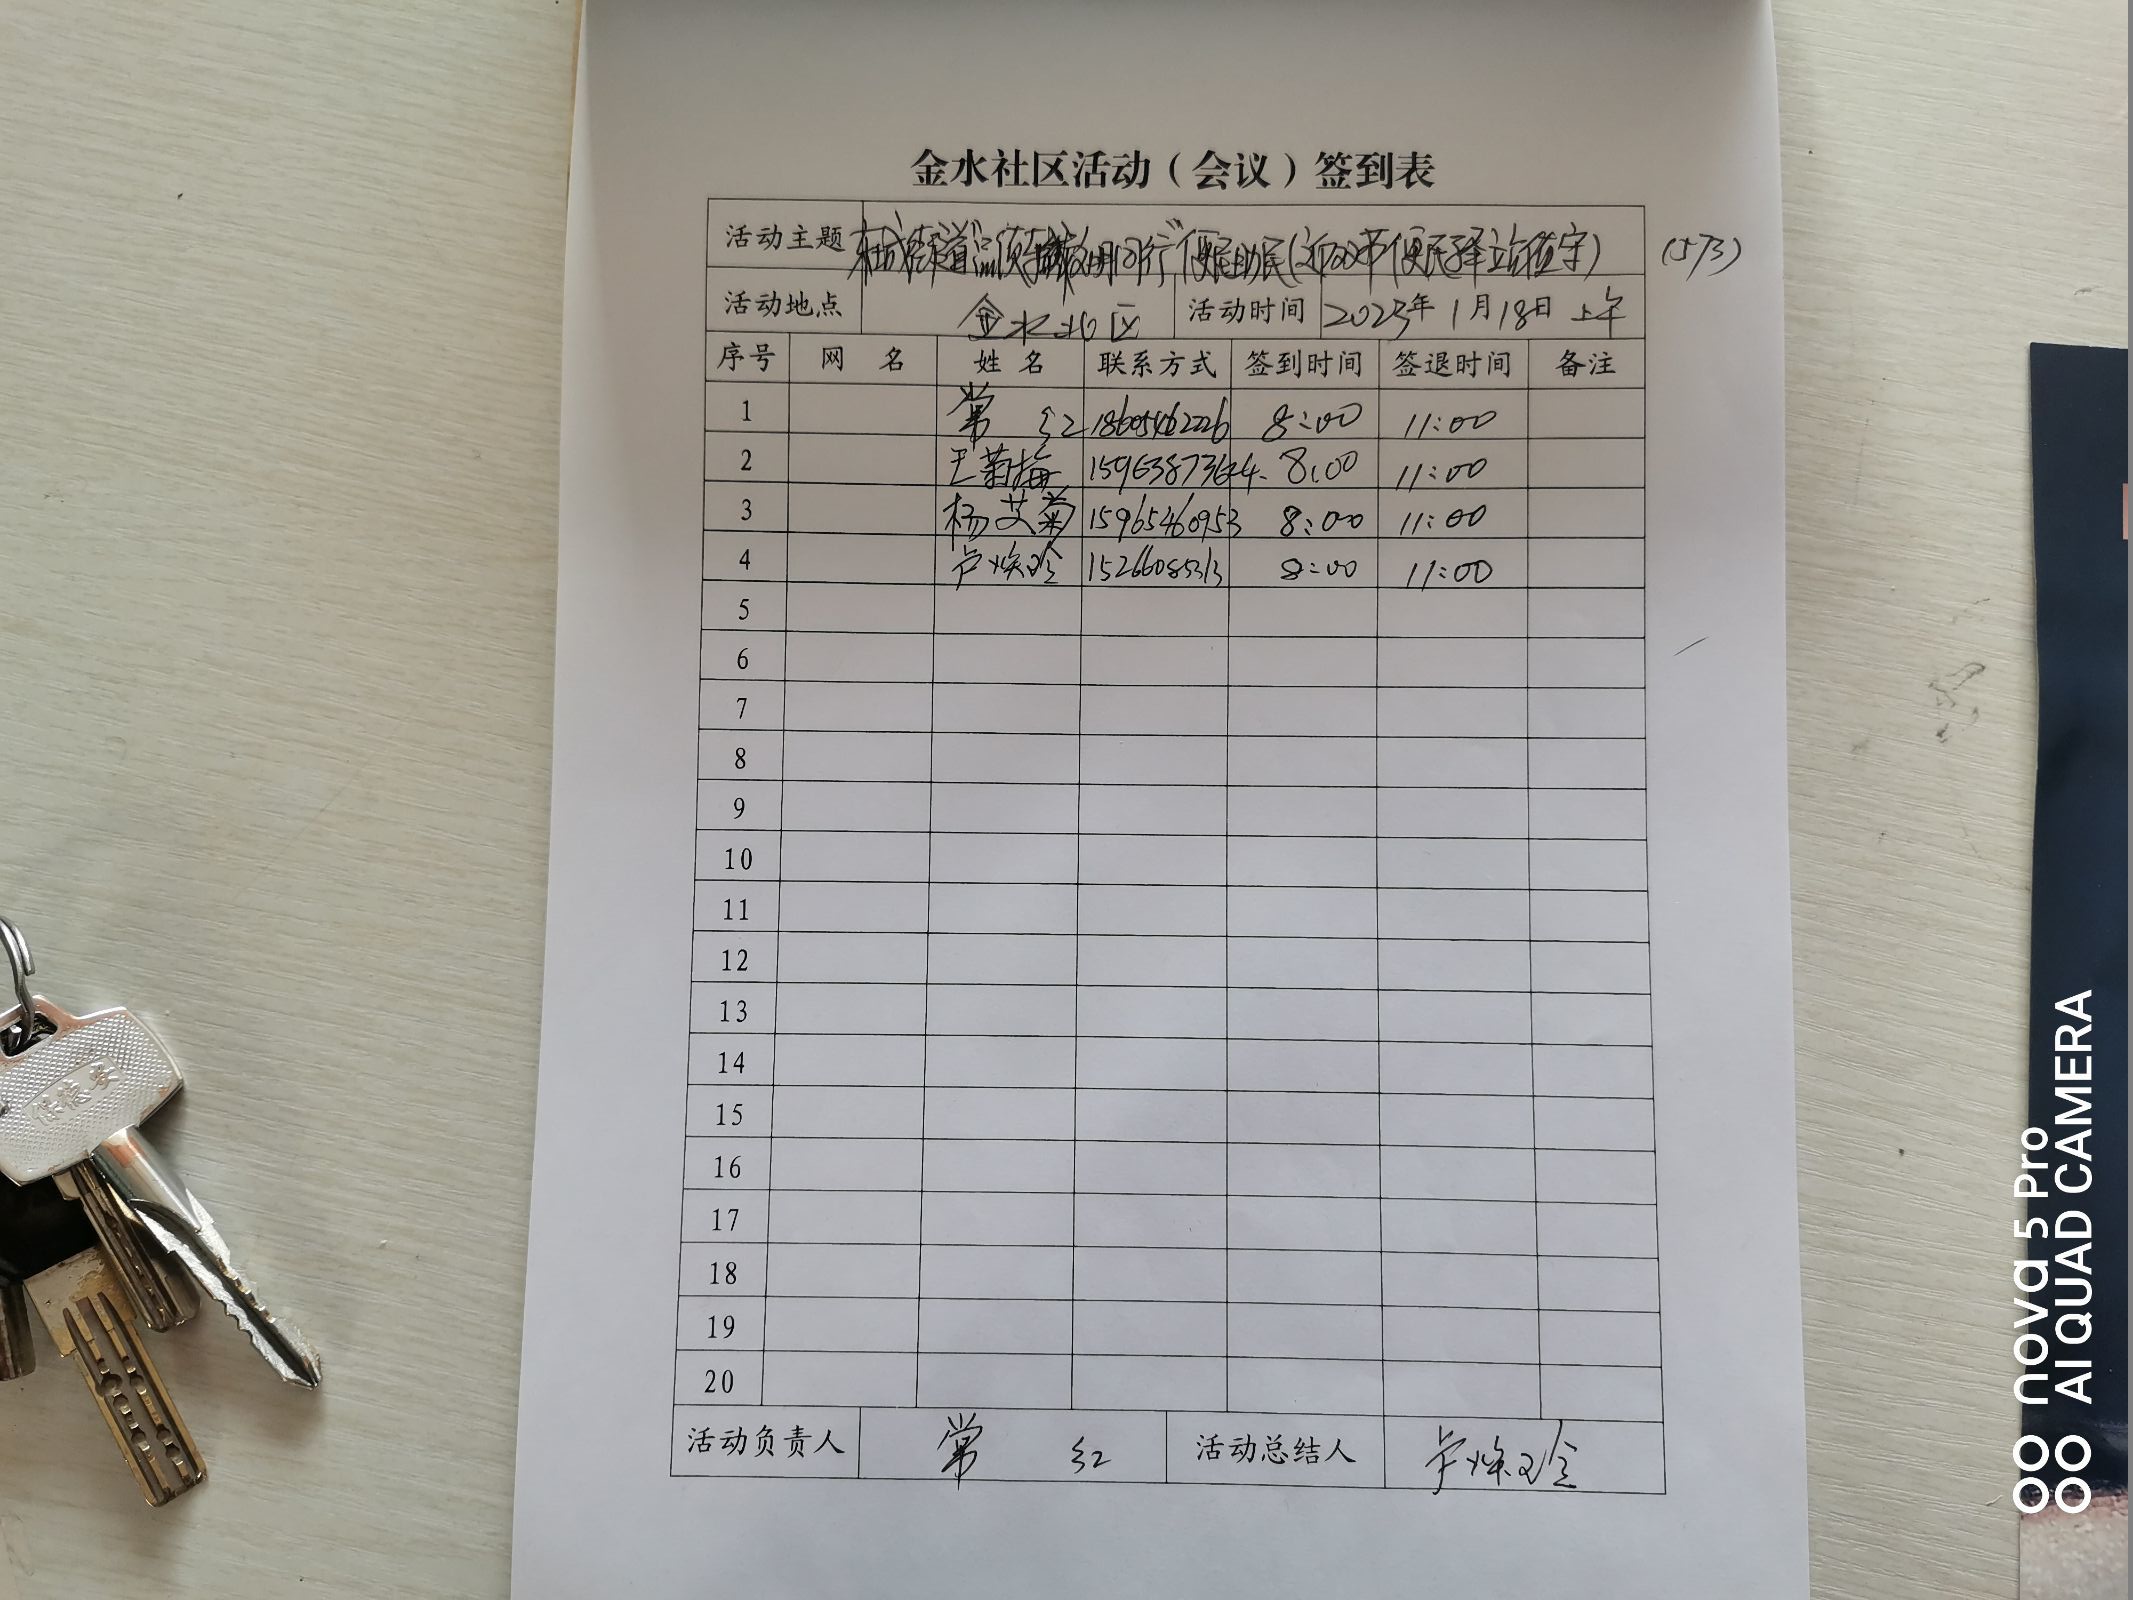 金水社区活动（会议）签到表
活动主题 东城街道 文明同行"便民助民( 便民驿站值守) (573)
活动地点 金水北区 活动时间 2023年1月18日 上午
序号 网 名 姓 名 联系方式 签到时间 签退时间 备注
1 常 红 18605462226 8:00 11:00
2 王菊梅 8:00 11:00
3 杨艾菊 15965460953 8:00 11:00
4 卢焕珍 15266085313 8:00 11:00
5
6
7
8
9
10
11
12
13
14
15
16
17
18
19
20
活动负责人 常 红 活动总结人 卢焕珍
保德安
nova 5 Pro
AI QUAD CAMERA